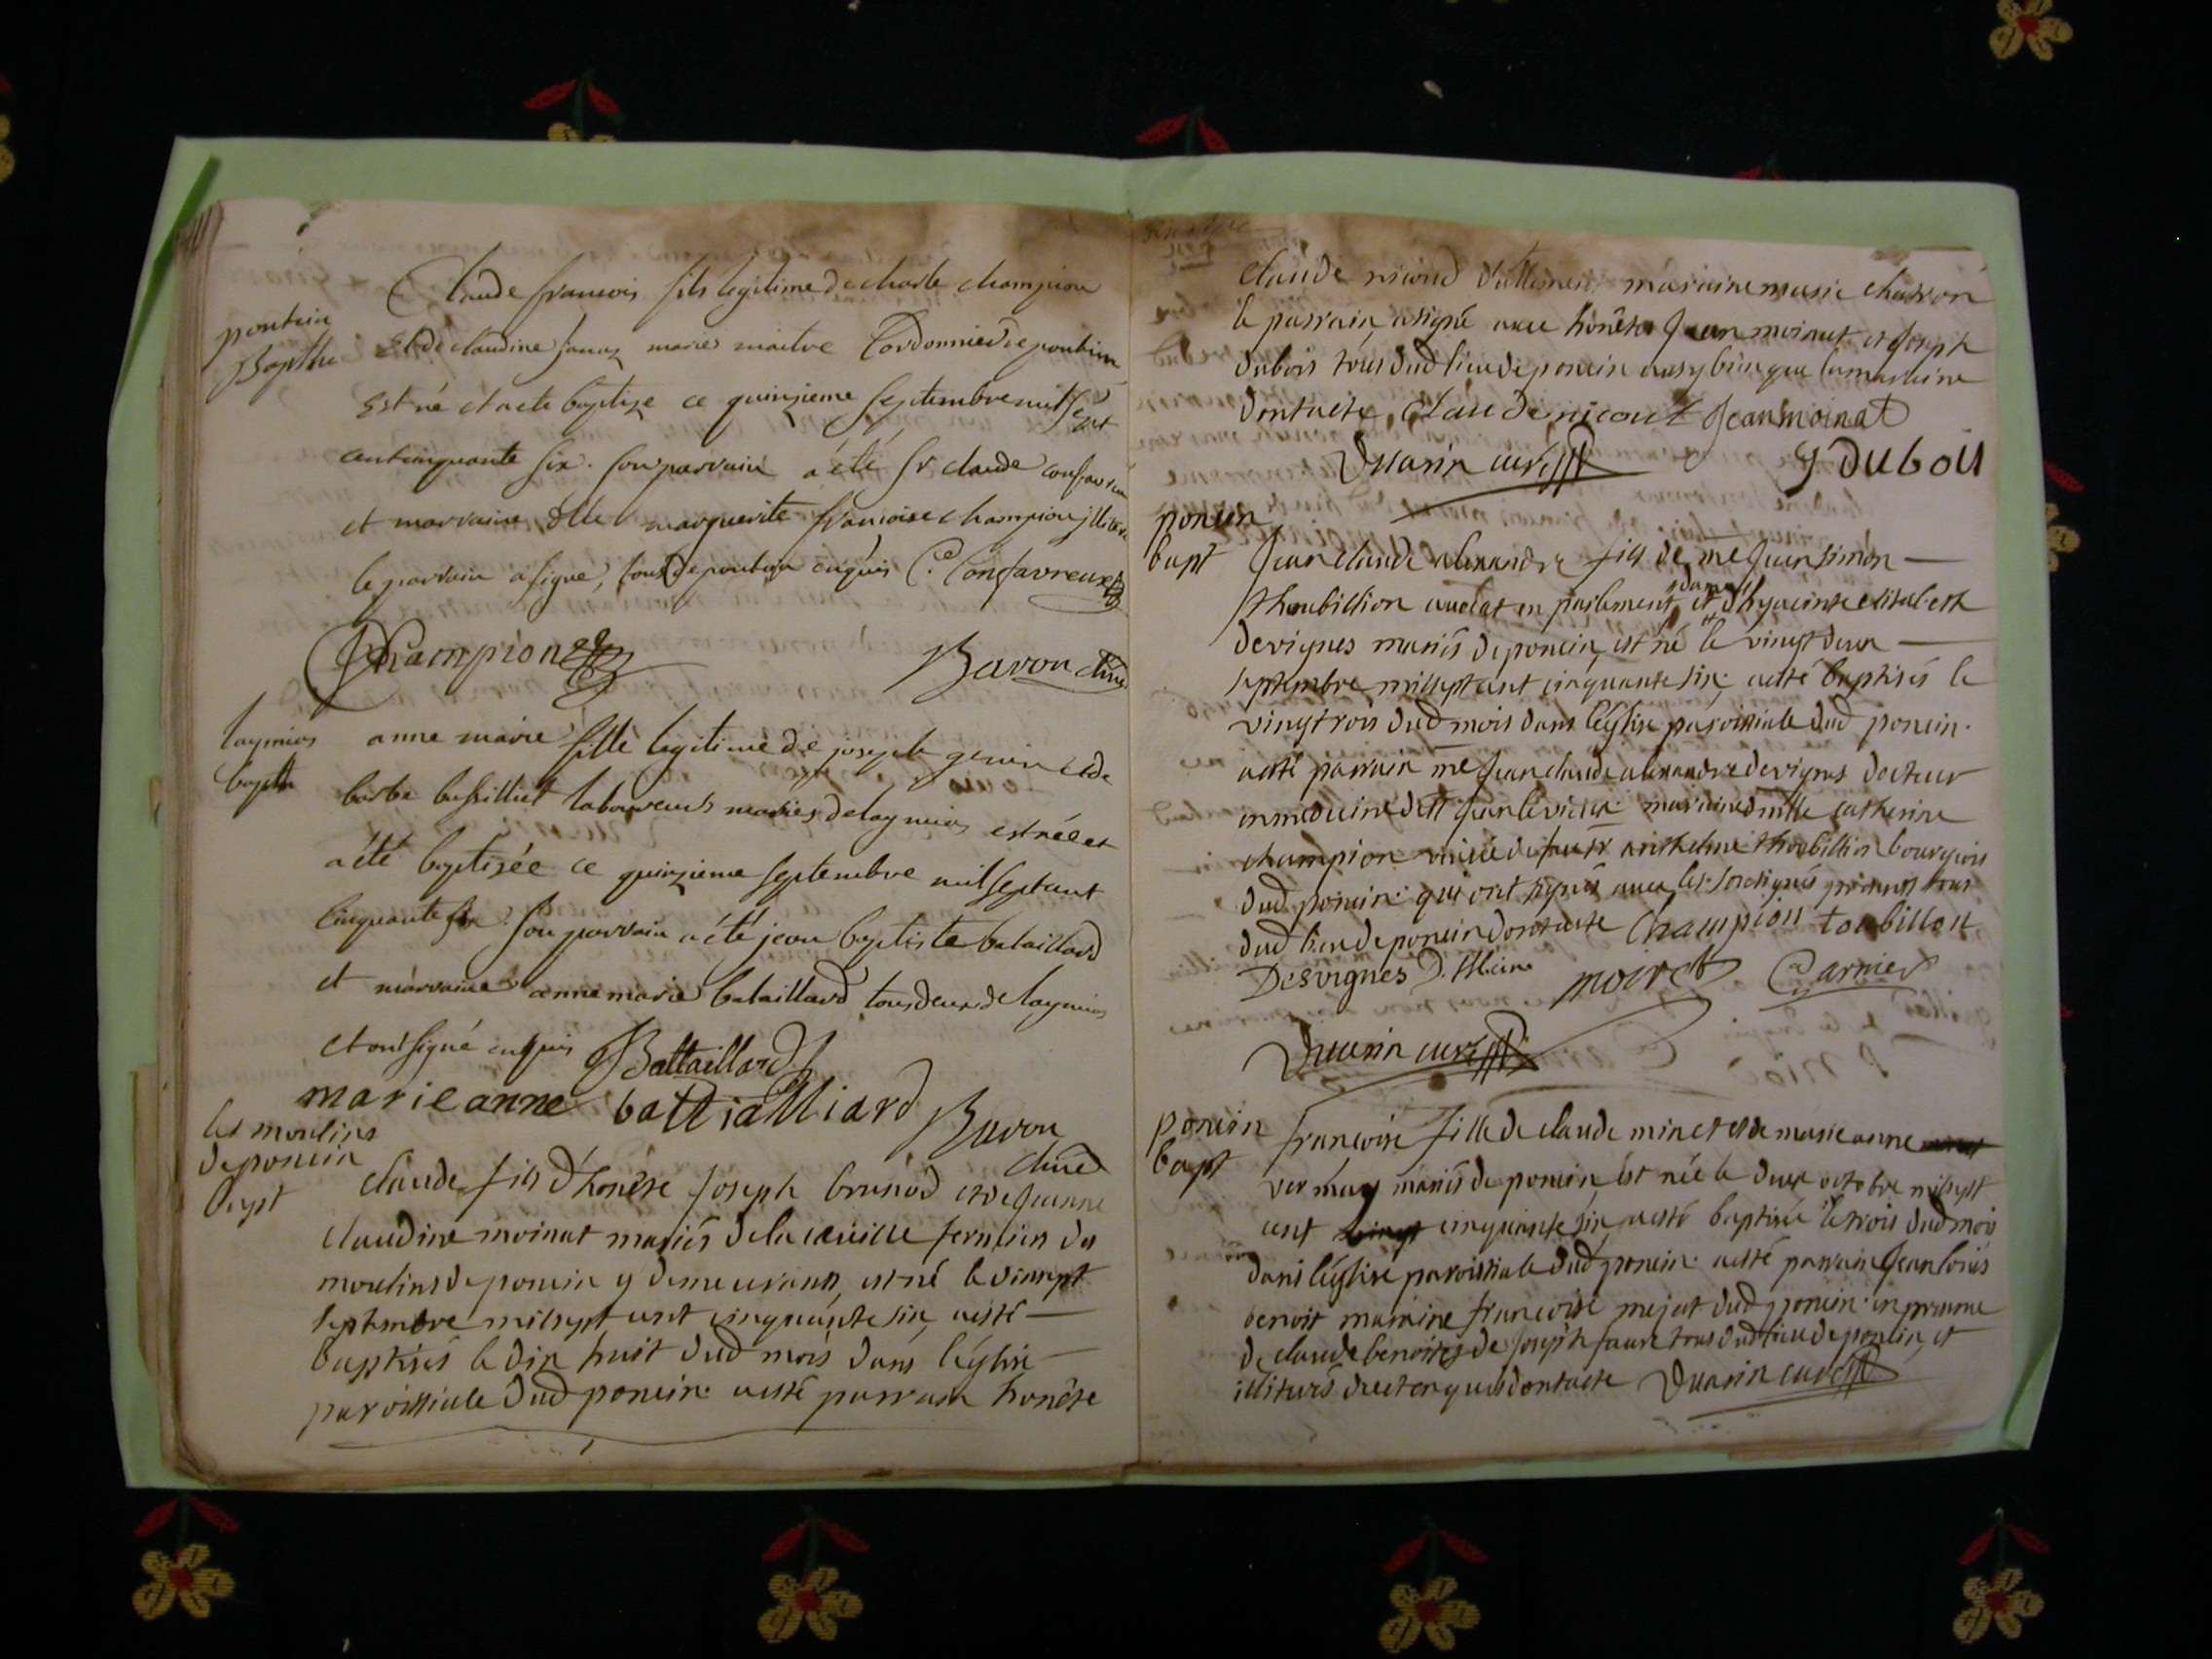 Claude francois fils legitime de charle champion
pontein
Baptbe
et de claudine janaz mariés maitre Cordonnier de pontein
est né et a ete baptize ce quinzieme septembre mil sept
cent cinquante six. son parrain a été sr claude confavreu
et marraine dlle marguerite francoise champion illitere
le parrain a signé, tous de pontein enquis C. Confavreux
Champion
Bavou Curé
laymias
baptbe
anne marie fille legitime de joseph genin et de
barbe bussilliet laboureurs mariés de laymias est née et
a été baptisée ce quinzieme septembre mil sept cent
cinquante six. son parrain a été jean baptiste bataillard
et marraine anne marie bataillard tous deux de laymias
et ont signé enquis Battaillard
marie anne battialliard
Bavou
Curé
les moulins
de poncin
bapt
claude fils d'honête joseph brunod et de jeanne
claudine moinat mariés de la fermiers du
moulins de poncin y demeurants, est né le dixsept
septembre mil sept cent cinquante six, a esté
baptisés le dix huit dud mois dans léglise
paroissiale dud poncin. a esté parrain honête
claude nicoud marraine marie
le parrain a signé avec honêtes jean moinat et joseph
dubois tous dud lieu de poncin aussy bien que la marraine
dont acte, claude nicout jean moinat
j dubois
Duarin curé
poncin
bapt
jean claude alexandre fils de me jean simon
thoubillion avocat en parlement, et dame hyacinte elisabeth
devignes mariés de poncin, est né le vingt deux
septembre mil sept cent cinquante six, a esté baptisés le
vingt trois dud mois dans léglise paroissiale dud poncin.
a esté parrain me jean claude alexandre devignes docteur
en medecine de st jean le vieux. marraine catherine
champion de anthelme thoubillion bourgeois
dud poncin. qui ont signés avec les soussignés presents tous
dud lieu de poncin dont acte Champion toubillon
Desvignes moiret Garnier
Duarin curé
poncin
bapt
francoise fille de claude minet et de marie anne
mariés de poncin, est née le deux octobre mil sept
cent cinquante six, a esté baptisée le trois dud mois
dans léglise paroissiale dud poncin. a esté parrain jean louis
benoit marraine francoise mejat dud poncin. en presence
de claude benoit, de joseph faure tous dud lieu de poncin, et
illiterés de ce enquis dont acte Duarin curé